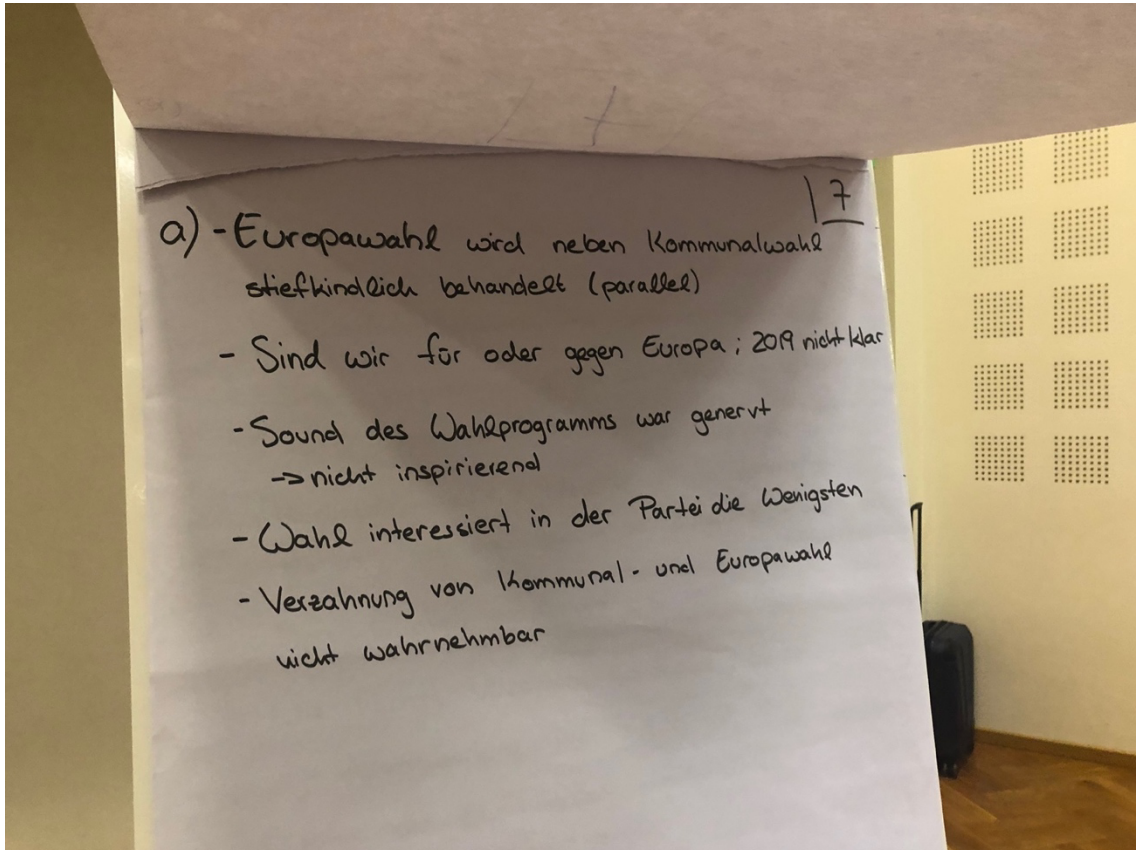 7
a) - Europawahl wird neben Kommunalwahl
stiefkindlich behandelt (parallel)
- Sind wir für oder gegen Europa; 2019 nicht klar
- Sound des Wahlprogramms war genervt
-> nicht inspirierend
- Wahl interessiert in der Partei die Wenigsten
- Verzahnung von Kommunal- und Europawahl
nicht wahrnehmbar